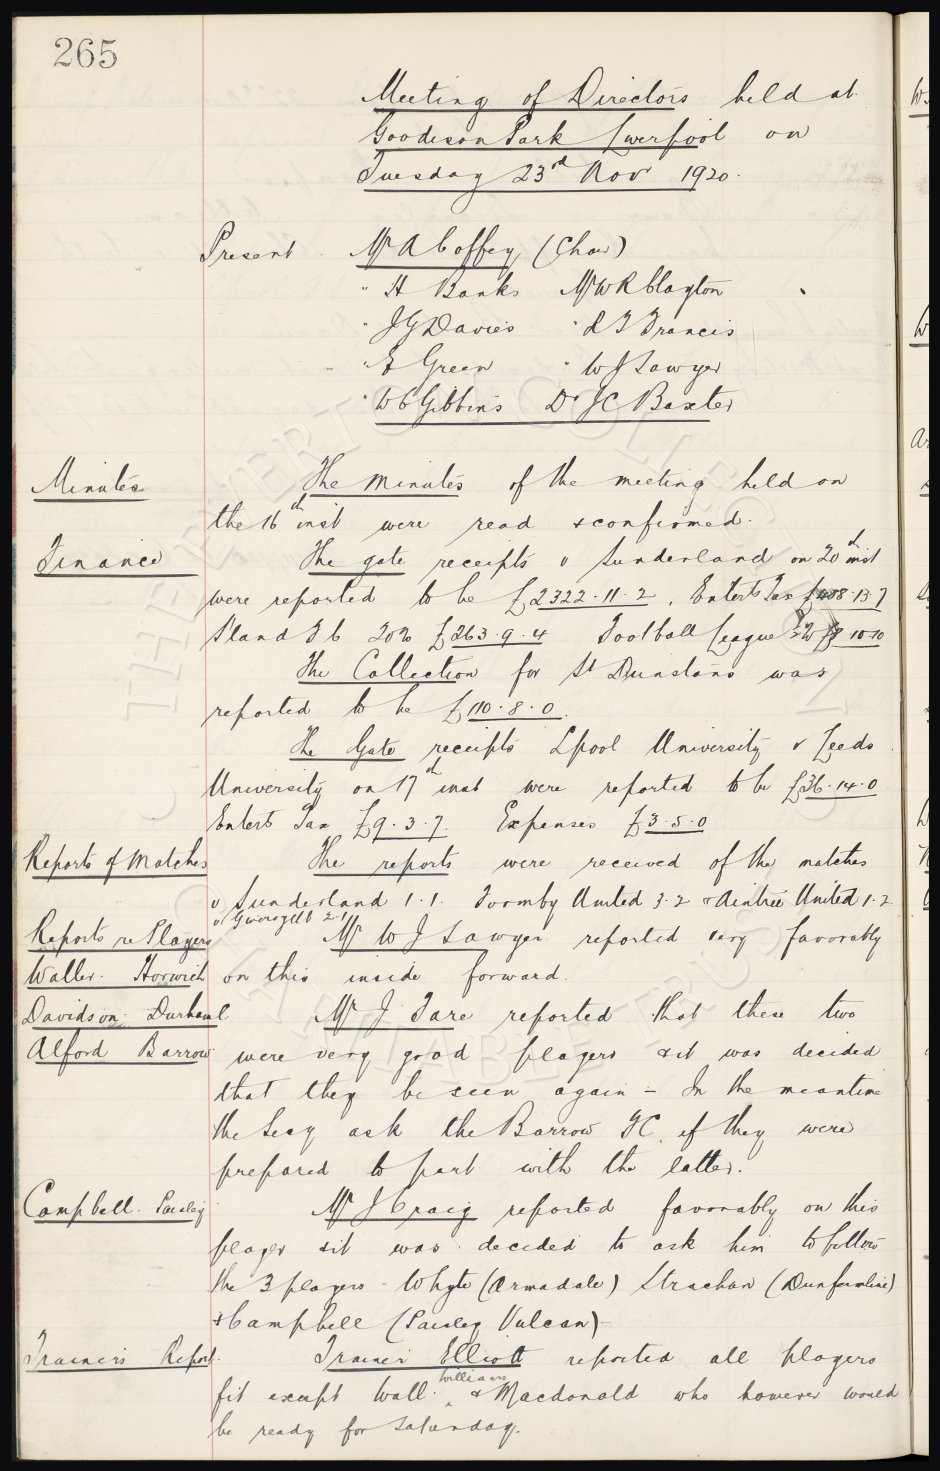 265
Meeting of Directors held at
Goodison Park Liverpool on
Tuesday 23rd Nov 1920.
Present Mr A Coffey (Chair)
" H Banks Mr W R Clayton
" J G Davies " A T Francis
" E Green " W J Sawyer
" W C Gibbins Dr J C Baxter
Minutes The minutes of the meeting held on
the 16th inst were read & confirmed.
Finance The gate receipts v Sunderland on 20th inst
were reported to be £2322.11.2. Enterts Tax £488.13.7
S'land F C 20% £263.9.4 Football League £18.10.10
The Collection for St Dunstans was
reported to be £110.8.0.
The Gate receipts Lpool University v Leeds
University on 17th inst were reported to be £36.14.0
Enterts Tax £9.3.7. Expenses £3.5.0
Reports of Matches The reports were received of the matches
v Sunderland 1.1. Formby United 3.2 & Aintree United 1.2
v Gwersyllt 2-1
Reports re Players Mr W J Sawyer reported very favorably
Waller. Horwich on this inside forward.
Davidson Durham C Mr J Fare reported that these two
Alford Barrow were very good players & it was decided
that they be seen again - In the meantime
the Secy ask the Barrow FC. if they were
prepared to part with the latter.
Campbell. Paisley Mr J Craig reported favorably on this
player & it was decided to ask him to follow
the 3 players - Whyte (Armadale) Strachan (Dunfermline)
& Campbell (Paisley Vulcan) -
Trainer's Report. Trainer Elliott reported all players
fit except Wall. Williams & Macdonald who however would
be ready for Saturday.